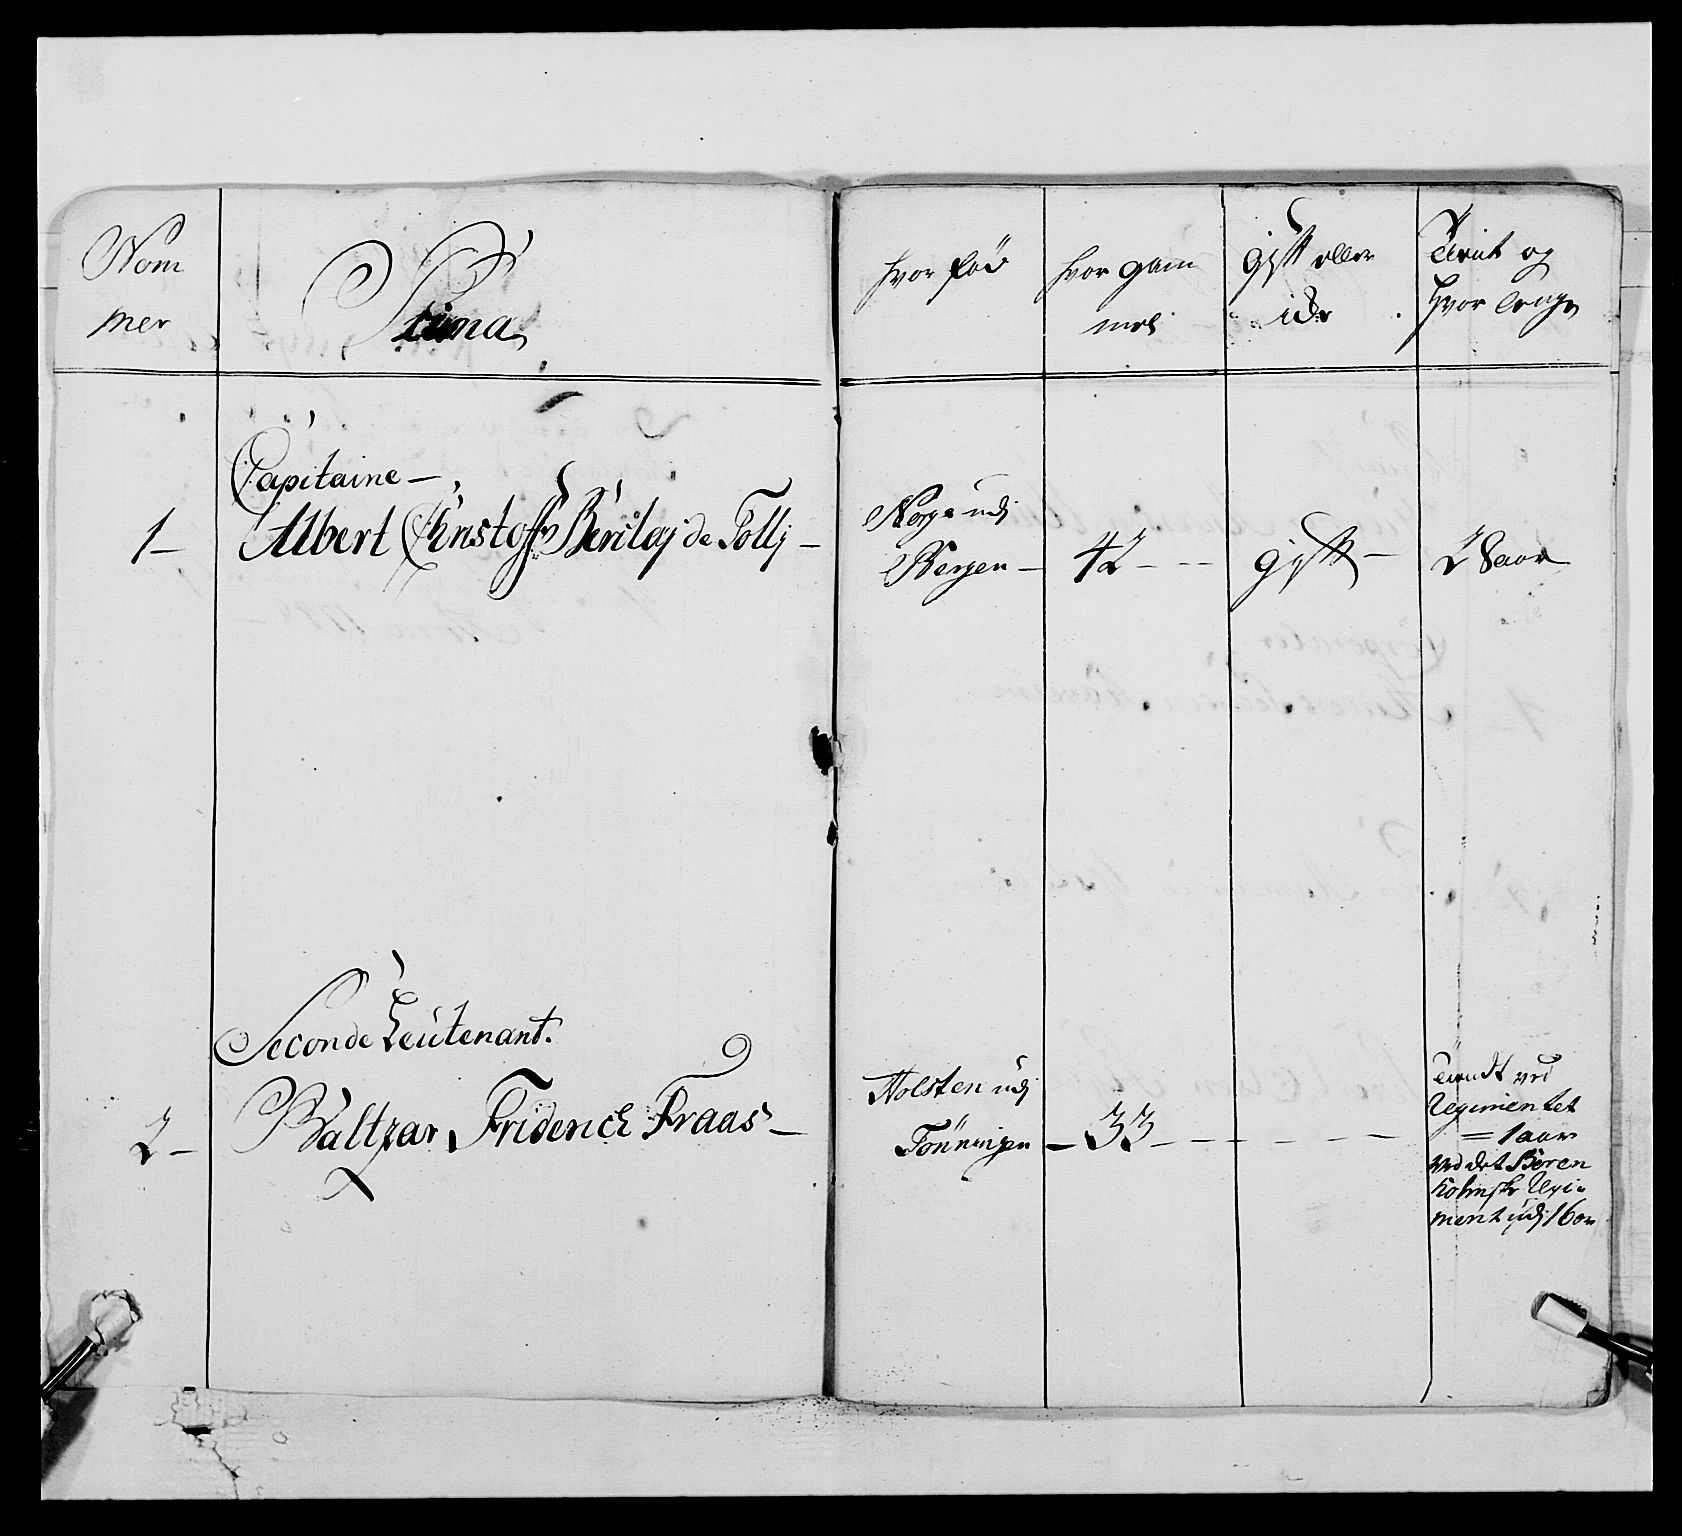 Nom
mer
Prima
hvor föd
hvor gam
mel
gift eller
icke
Tient og
hvor lenge
Capitaine
1 Albert Christoffr Berclaj de Tollj
Norge udj
Bergen
42
gift
28 aar
Seconde Leutenant.
2 Baltzar Friderich Fraas
Holsten udj
Tönningen
33
Tiendt ved
Regimentet
= 1 aar
ved det Boren
holmske Regi
ment udj 16 aar